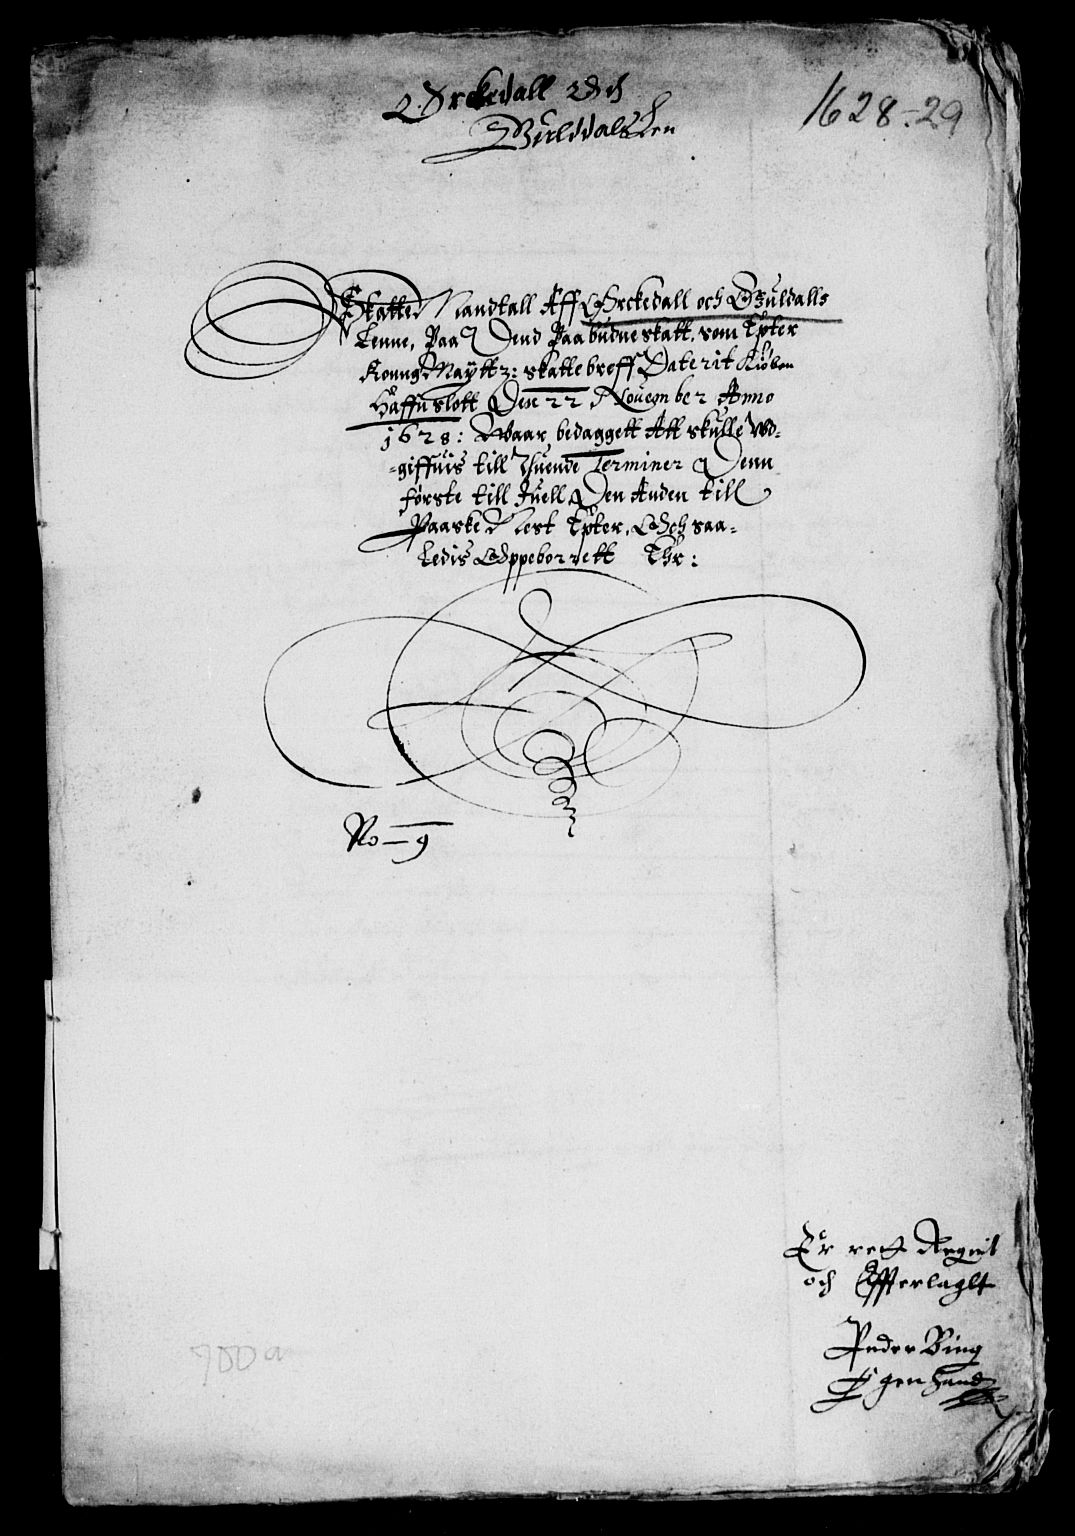 Orckedall och
Guldals Len
1628-29
Skatte Mandtall Aff Orckedall och Guldalls
Lenne, Paa Dend Paabudne skatt, som Epter
Konng Maÿttz: skattebreff Daterit Kiøben
Haffns lott Den 22 Nouember Anno
1628: Waar bedaggett Att skulle Vd-
-giffuis till Thuende Terminer Denn
første till Juell Den Anden till
Paaske Nest Epter, Och saa-
ledis Oppeborrett Thr:
No - 9
Er rett Regnit
och Offterlagtt
Peder Bing
Egen Hand
700a